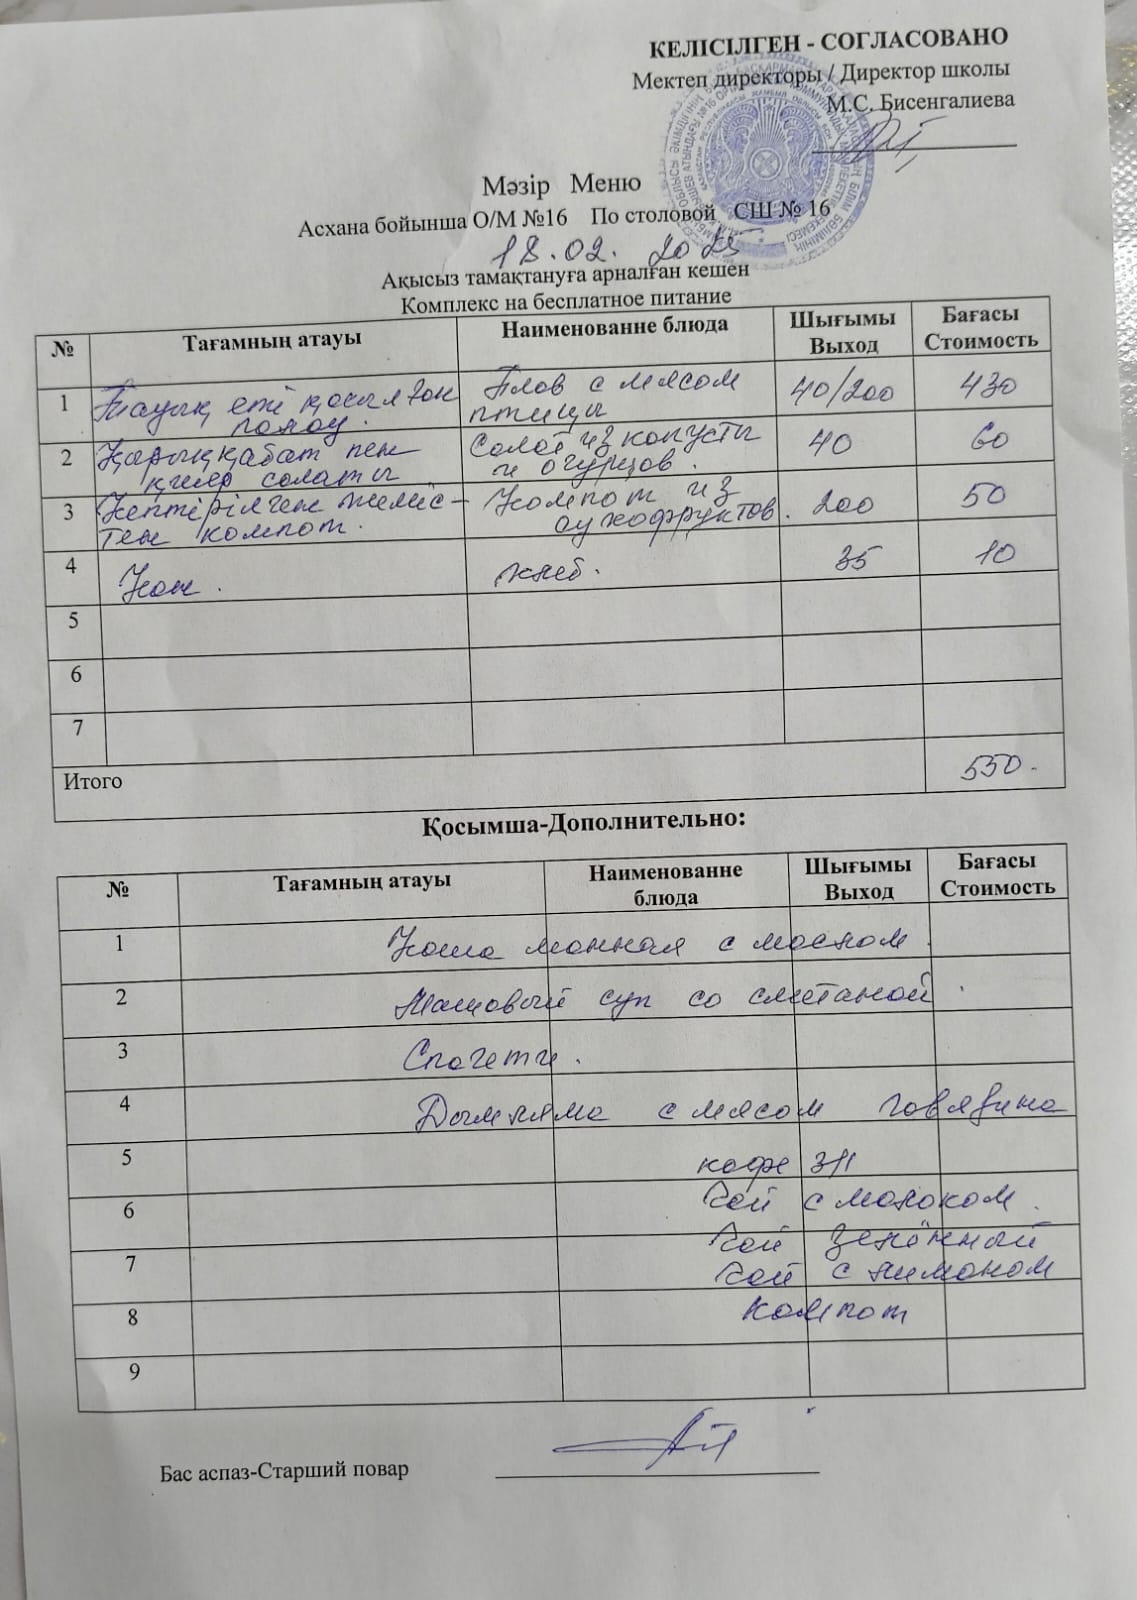 КЕЛІСІЛГЕН - СОГЛАСОВАНО
Мектеп директоры / Директор школы
М.С. Бисенгалиева
Мәзір Меню
Асхана бойынша О/М №16 По столовой СШ № 16
18.02. 2025
Ақысыз тамақтануға арналған кешен
Комплекс на бесплатное питание
№ Тағамның атауы Наименованне блюда Шығымы Выход Бағасы Стоимость
1 Тауық еті қосылған палау. Плов с мясом птицы 40/200 430
2 Қырыққабат пен қияр салаты Салат из капусты и огурцов. 40 60
3 Кептірілген жеміс-тен компот. Компот из сухофруктов. 200 50
4 Нан. хлеб. 35 10
5
6
7
Итого 550.
Қосымша-Дополнительно:
№ Тағамның атауы Наименованне блюда Шығымы Выход Бағасы Стоимость
1 Каша манная с маслом.
2 Машовый суп со сметаной.
3 Спагетти.
4 Дымляма с мясом говядина
5 кофе 3/1
6 Чай с молоком.
Чай зелённый
7 Чай с лимоном
8 Компот
9
Бас аспаз-Старший повар